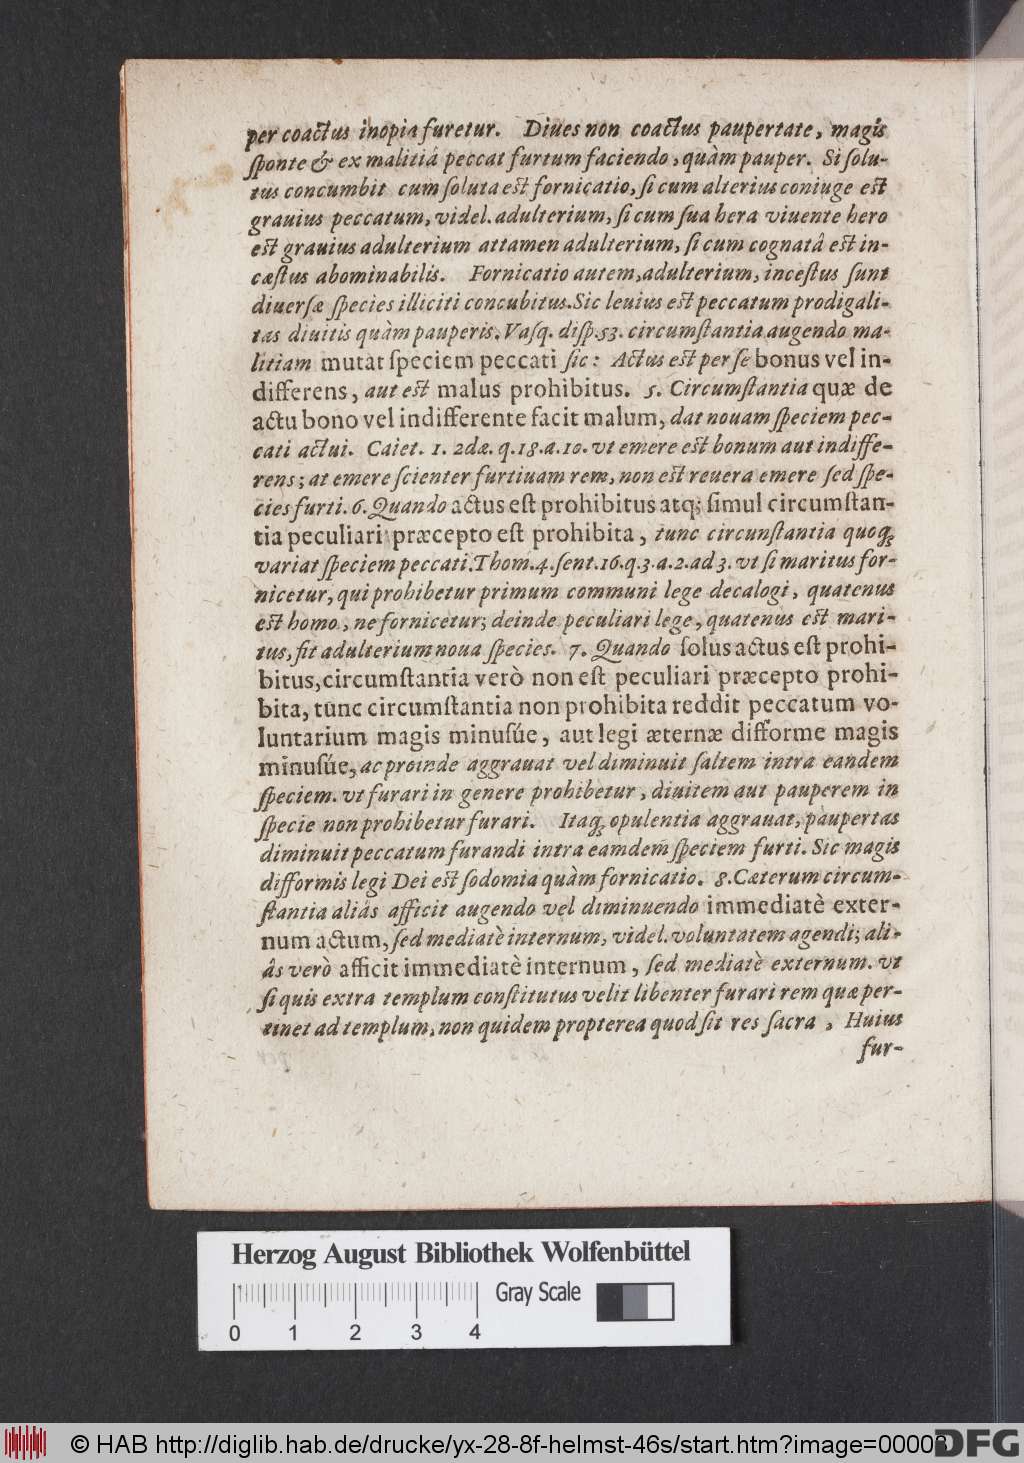 per coactus inopia furetur. Diues non coactus paupertate, magis
ſponte & ex malitiâ peccat furtum faciendo, quàm pauper. Si ſolu-
tus concumbit cum ſoluta est fornicatio, ſi cum alterius coniuge est
grauius peccatum, videl. adulterium, ſi cum ſua hera viuente hero
est grauius adulterium attamen adulterium, ſi cum cognatâ est in-
cæſtus abominabilis. Fornicatio autem, adulterium, inceſtus ſunt
diuerſæ ſpecies illiciti concubitus. Sic leuius est peccatum prodigali-
tas diuitis quàm pauperis. Vaſq. diſp. 53. circumſtantia augendo ma-
litiam mutat ſpeciem peccati ſic: Actus est per ſe bonus vel in-
differens, aut est malus prohibitus. 5. Circumſtantia quæ de
actu bono vel indifferente facit malum, dat nouam ſpeciem pec-
cati actui. Caiet. 1. 2dæ. q. 18. a. 10. vt emere est bonum aut indiffe-
rens; at emere ſcienter furtiuam rem, non est reuera emere ſed ſpe-
cies furti. 6. Quando actus eſt prohibitus atq; ſimul circumſtan-
tia peculiari præcepto eſt prohibita, tunc circunſtantia quoq;
variat ſpeciem peccati. Thom. 4. ſent. 16. q. 3. a. 2. ad 3. vt ſi maritus for-
nicetur, qui prohibetur primum communi lege decalogi, quatenus
est homo, ne fornicetur; deinde peculiari lege, quatenus est mari-
tus, ſit adulterium noua ſpecies. 7. Quando ſolus actus eſt prohi-
bitus, circumſtantia verò non eſt peculiari præcepto prohi-
bita, tunc circumſtantia non prohibita reddit peccatum vo-
luntarium magis minuſúe, aut legi æternæ difforme magis
minuſúe, ac proinde aggrauat vel diminuit ſaltem intra eandem
ſpeciem. vt furari in genere prohibetur, diuitem aut pauperem in
ſpecie non prohibetur furari. Itaq; opulentia aggrauat, paupertas
diminuit peccatum furandi intra eamdem ſpeciem furti. Sic magis
difformis legi Dei est ſodomia quàm fornicatio. 8. Cæterum circum-
ſtantia aliâs afficit augendo vel diminuendo immediatè exter-
num actum, ſed mediatè internum, videl. voluntatem agendi; ali-
âs verò afficit immediatè internum, ſed mediatè externum. vt
ſi quis extra templum conſtitutus velit libenter furari rem quæ per-
tinet ad templum, non quidem propterea quod ſit res ſacra, Huius
fur-
Herzog August Bibliothek Wolfenbüttel
Gray Scale
0 1 2 3 4
© HAB http://diglib.hab.de/drucke/yx-28-8f-helmst-46s/start.htm?image=00008
DFG